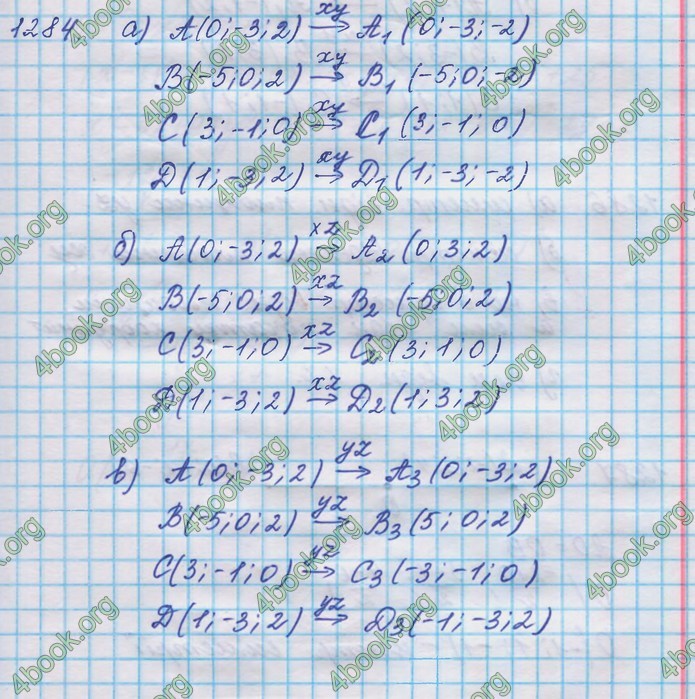 1284 а) A(0;-3;2) xy→ A1(0;-3;-2)
B(-5;0;2) xy→ B1(-5;0;-2)
C(3;-1;0) xy→ C1(3;-1;0)
D(1;-3;2) xy→ D1(1;-3;-2)
б) A(0;-3;2) xz→ A2(0;3;2)
B(-5;0;2) xz→ B2(-5;0;2)
C(3;-1;0) xz→ C2(3;1;0)
D(1;-3;2) xz→ D2(1;3;2)
в) A(0;-3;2) yz→ A3(0;-3;2)
B(-5;0;2) yz→ B3(5;0;2)
C(3;-1;0) yz→ C3(-3;-1;0)
D(1;-3;2) yz→ D3(-1;-3;2)
4book.org